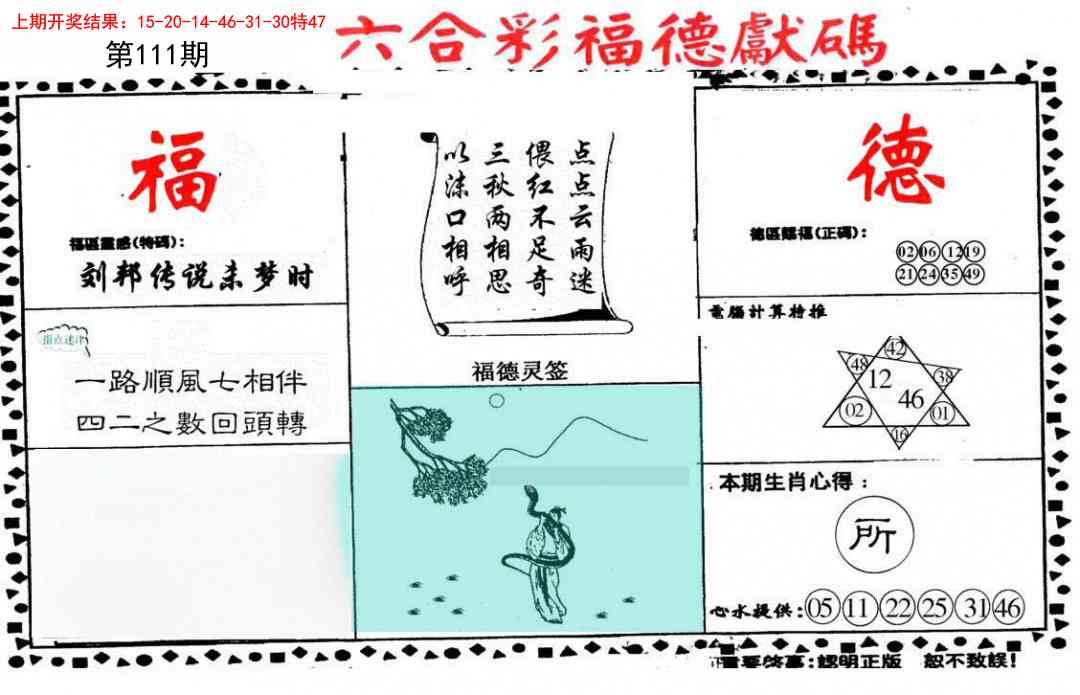 上期开奖结果：15-20-14-46-31-30特47
第111期
六合彩福德獻碼
福
福區靈感(特碼):
刘邦传说未梦时
指点迷津
一路順風七相伴
四二之數回頭轉
点点云雨迷
偎红不足奇
三秋两相思
以沫口相呼
福德灵签
德
德區賜福(正碼):
02 06 12 19
21 24 35 49
電腦計算特推
42
48 12 38
46
02 01
16
本期生肖心得：
所
心水提供:05 11 22 25 31 46
重要啓事:認明正版 恕不致誤!